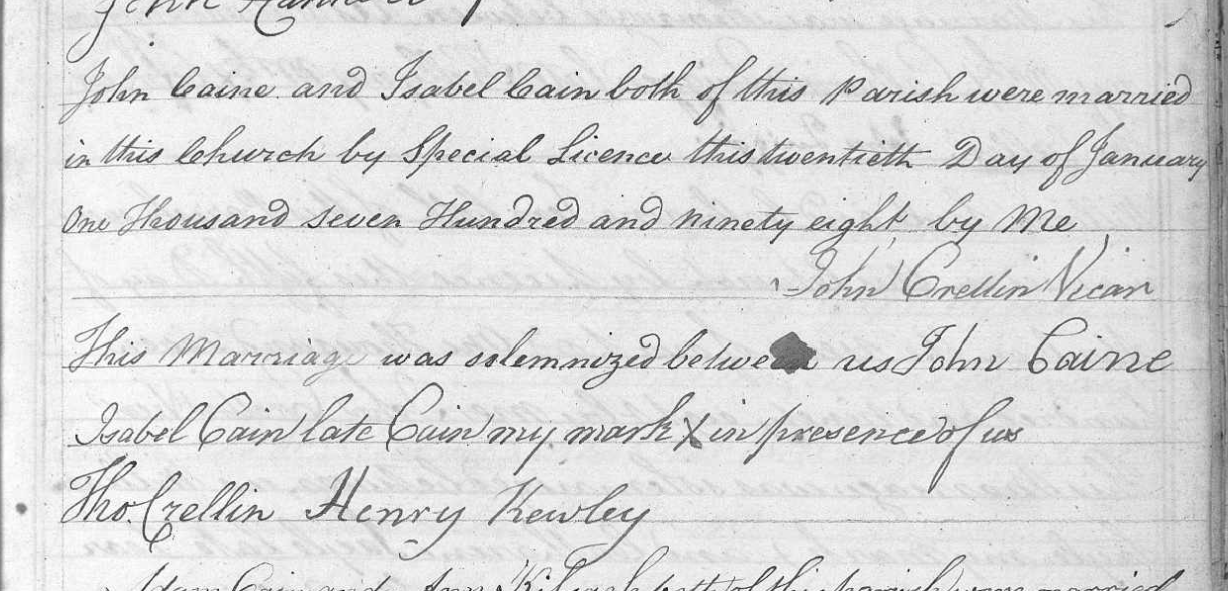 John
John Caine and Isabel Cain both of this Parish were married
in this Church by Special Licence this twentieth Day of January
One Thousand Seven Hundred and Ninety eight by Me
John Crellin Vicar
This Marriage was solemnized between us John Caine
Isabel Cain late Cain my mark X in presence of us
Tho. Crellin Henry Kewley
Adam Cain and Ann both of this parish were married